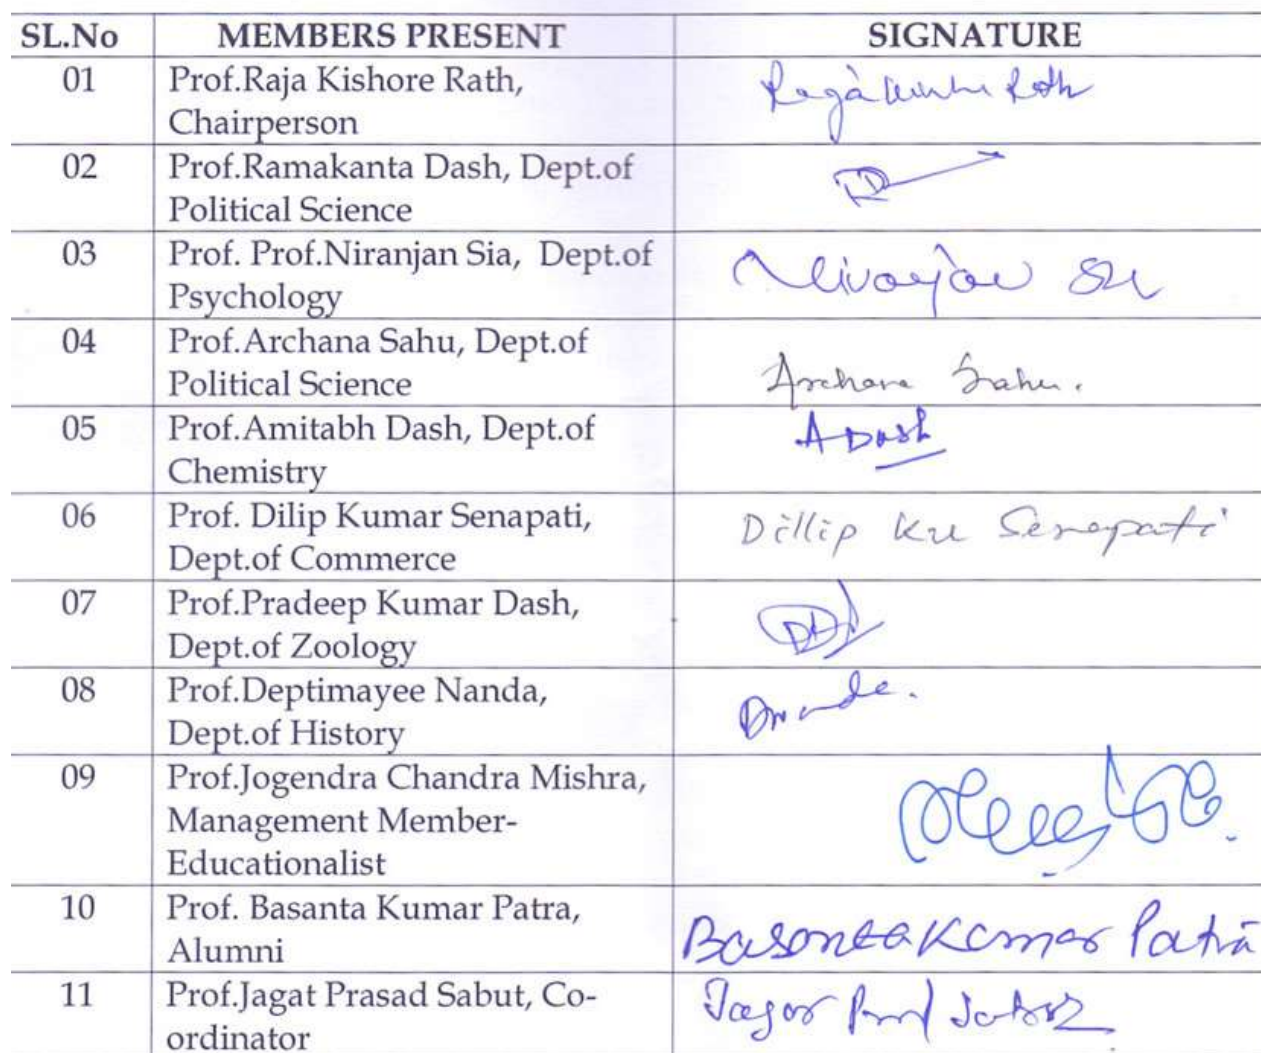 SL.No MEMBERS PRESENT SIGNATURE
01 Prof.Raja Kishore Rath,
Chairperson
02 Prof.Ramakanta Dash, Dept.of
Political Science
03 Prof. Prof.Niranjan Sia, Dept.of
Psychology
04 Prof.Archana Sahu, Dept.of
Political Science Archana Sahu.
05 Prof.Amitabh Dash, Dept.of ADash
Chemistry
06 Prof. Dilip Kumar Senapati, Dillip Ku Senapati
Dept.of Commerce
07 Prof.Pradeep Kumar Dash,
Dept.of Zoology
08 Prof.Deptimayee Nanda,
Dept.of History
09 Prof.Jogendra Chandra Mishra,
Management Member-
Educationalist
10 Prof. Basanta Kumar Patra,
Alumni Basanta Kumar Patra
11 Prof.Jagat Prasad Sabut, Co-
ordinator